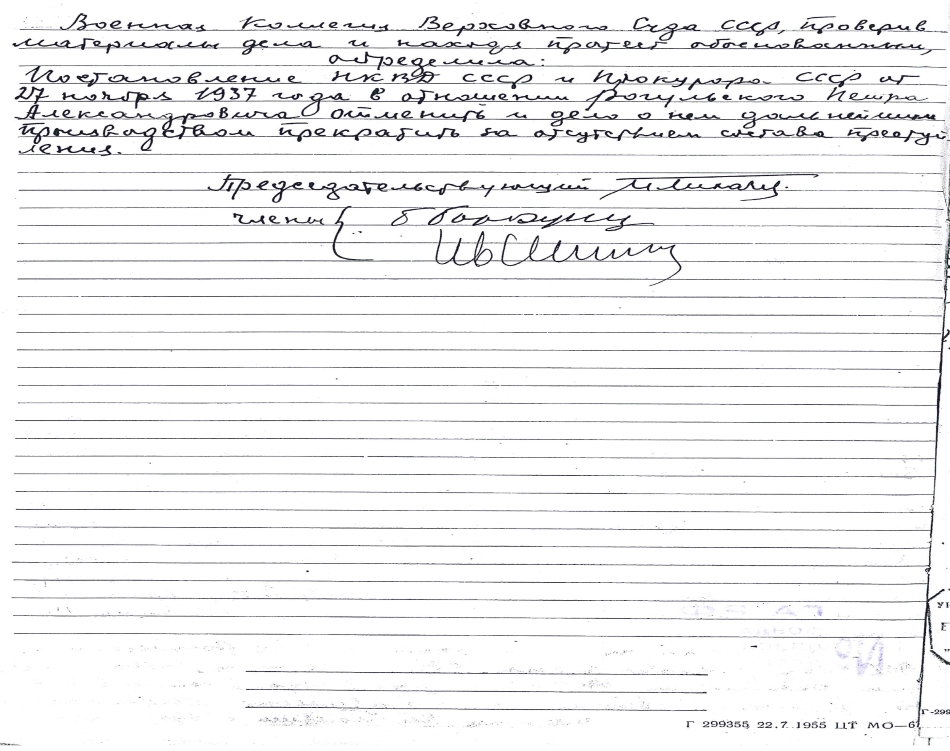 Военная Коллегия Верховного Суда СССР, проверив
материалы дела и находя протест обоснованным,
определила:
Постановление НКВД СССР и Прокурора СССР от
27 ноября 1937 года в отношении Рогульского Петра
Александровича отменить и дело о нем дальнейшим
производством прекратить за отсутствием состава преступ
ления.
Председательствующий
члены
Г 299355 22.7.1955 ЦТ МО—6
Г-299